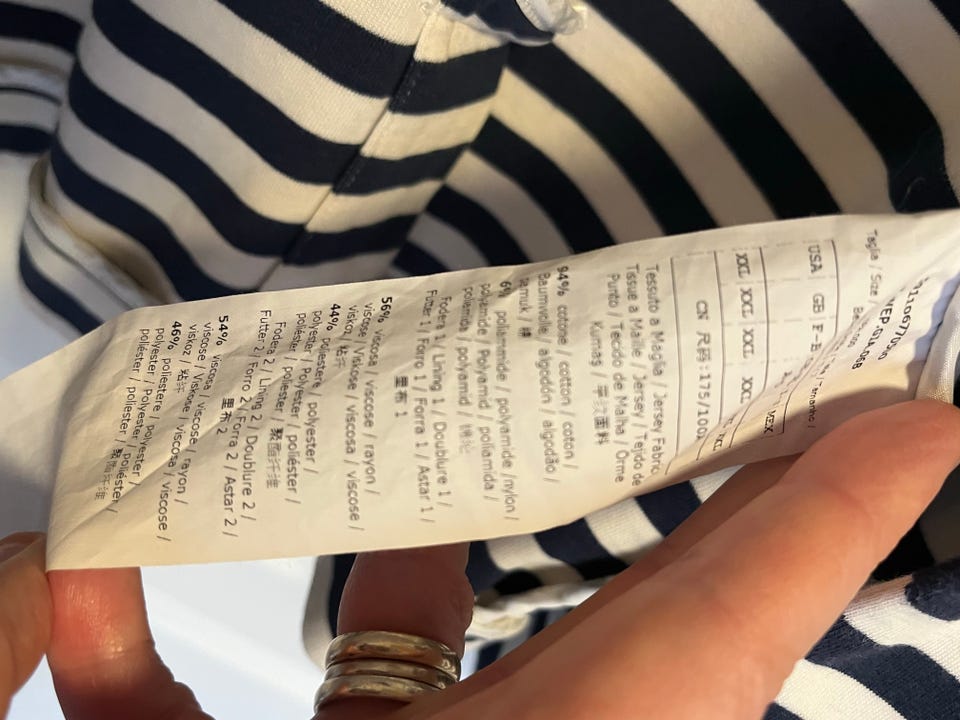 Taglia / Size /
USA GB F-B
MEX
XXL XXL XXL
CN 尺码:175/100A
Tessuto a Maglia / Jersey Fabric
Tissue a Maille / Jersey / Tejido de
Punto / Tecido de Malha / Örme
Kumaş / 平纹面料
94% cotone / cotton / coton /
Baumwolle / algodón / algodão /
pamuk / 棉
6% poliammide / polyamide /nylon /
polyamide / Polyamid / poliamida /
poliamida / polyamid /
Fodera 1 / Lining 1 / Doublure 1 /
Futter 1 / Forro 1 / Forra 1 / Astar 1 /
里布 1
56% viscosa / viscose / rayon /
viscose / Viskose / viscosa / viscose /
viskoz / 粘纤
44% poliestere / polyester /
polyester / Polyester / poliéster /
poliéster / poliester / 聚酯纤维
Fodera 2 / Lining 2 / Doublure 2 /
Futter 2 / Forro 2 / Forra 2 / Astar 2 /
里布 2
54% viscosa / viscose / rayon /
viscose / Viskose / viscosa / viscose /
viskoz / 粘纤
46% poliestere / polyester /
polyester / Polyester / poliéster /
poliéster / poliester / 聚酯纤维